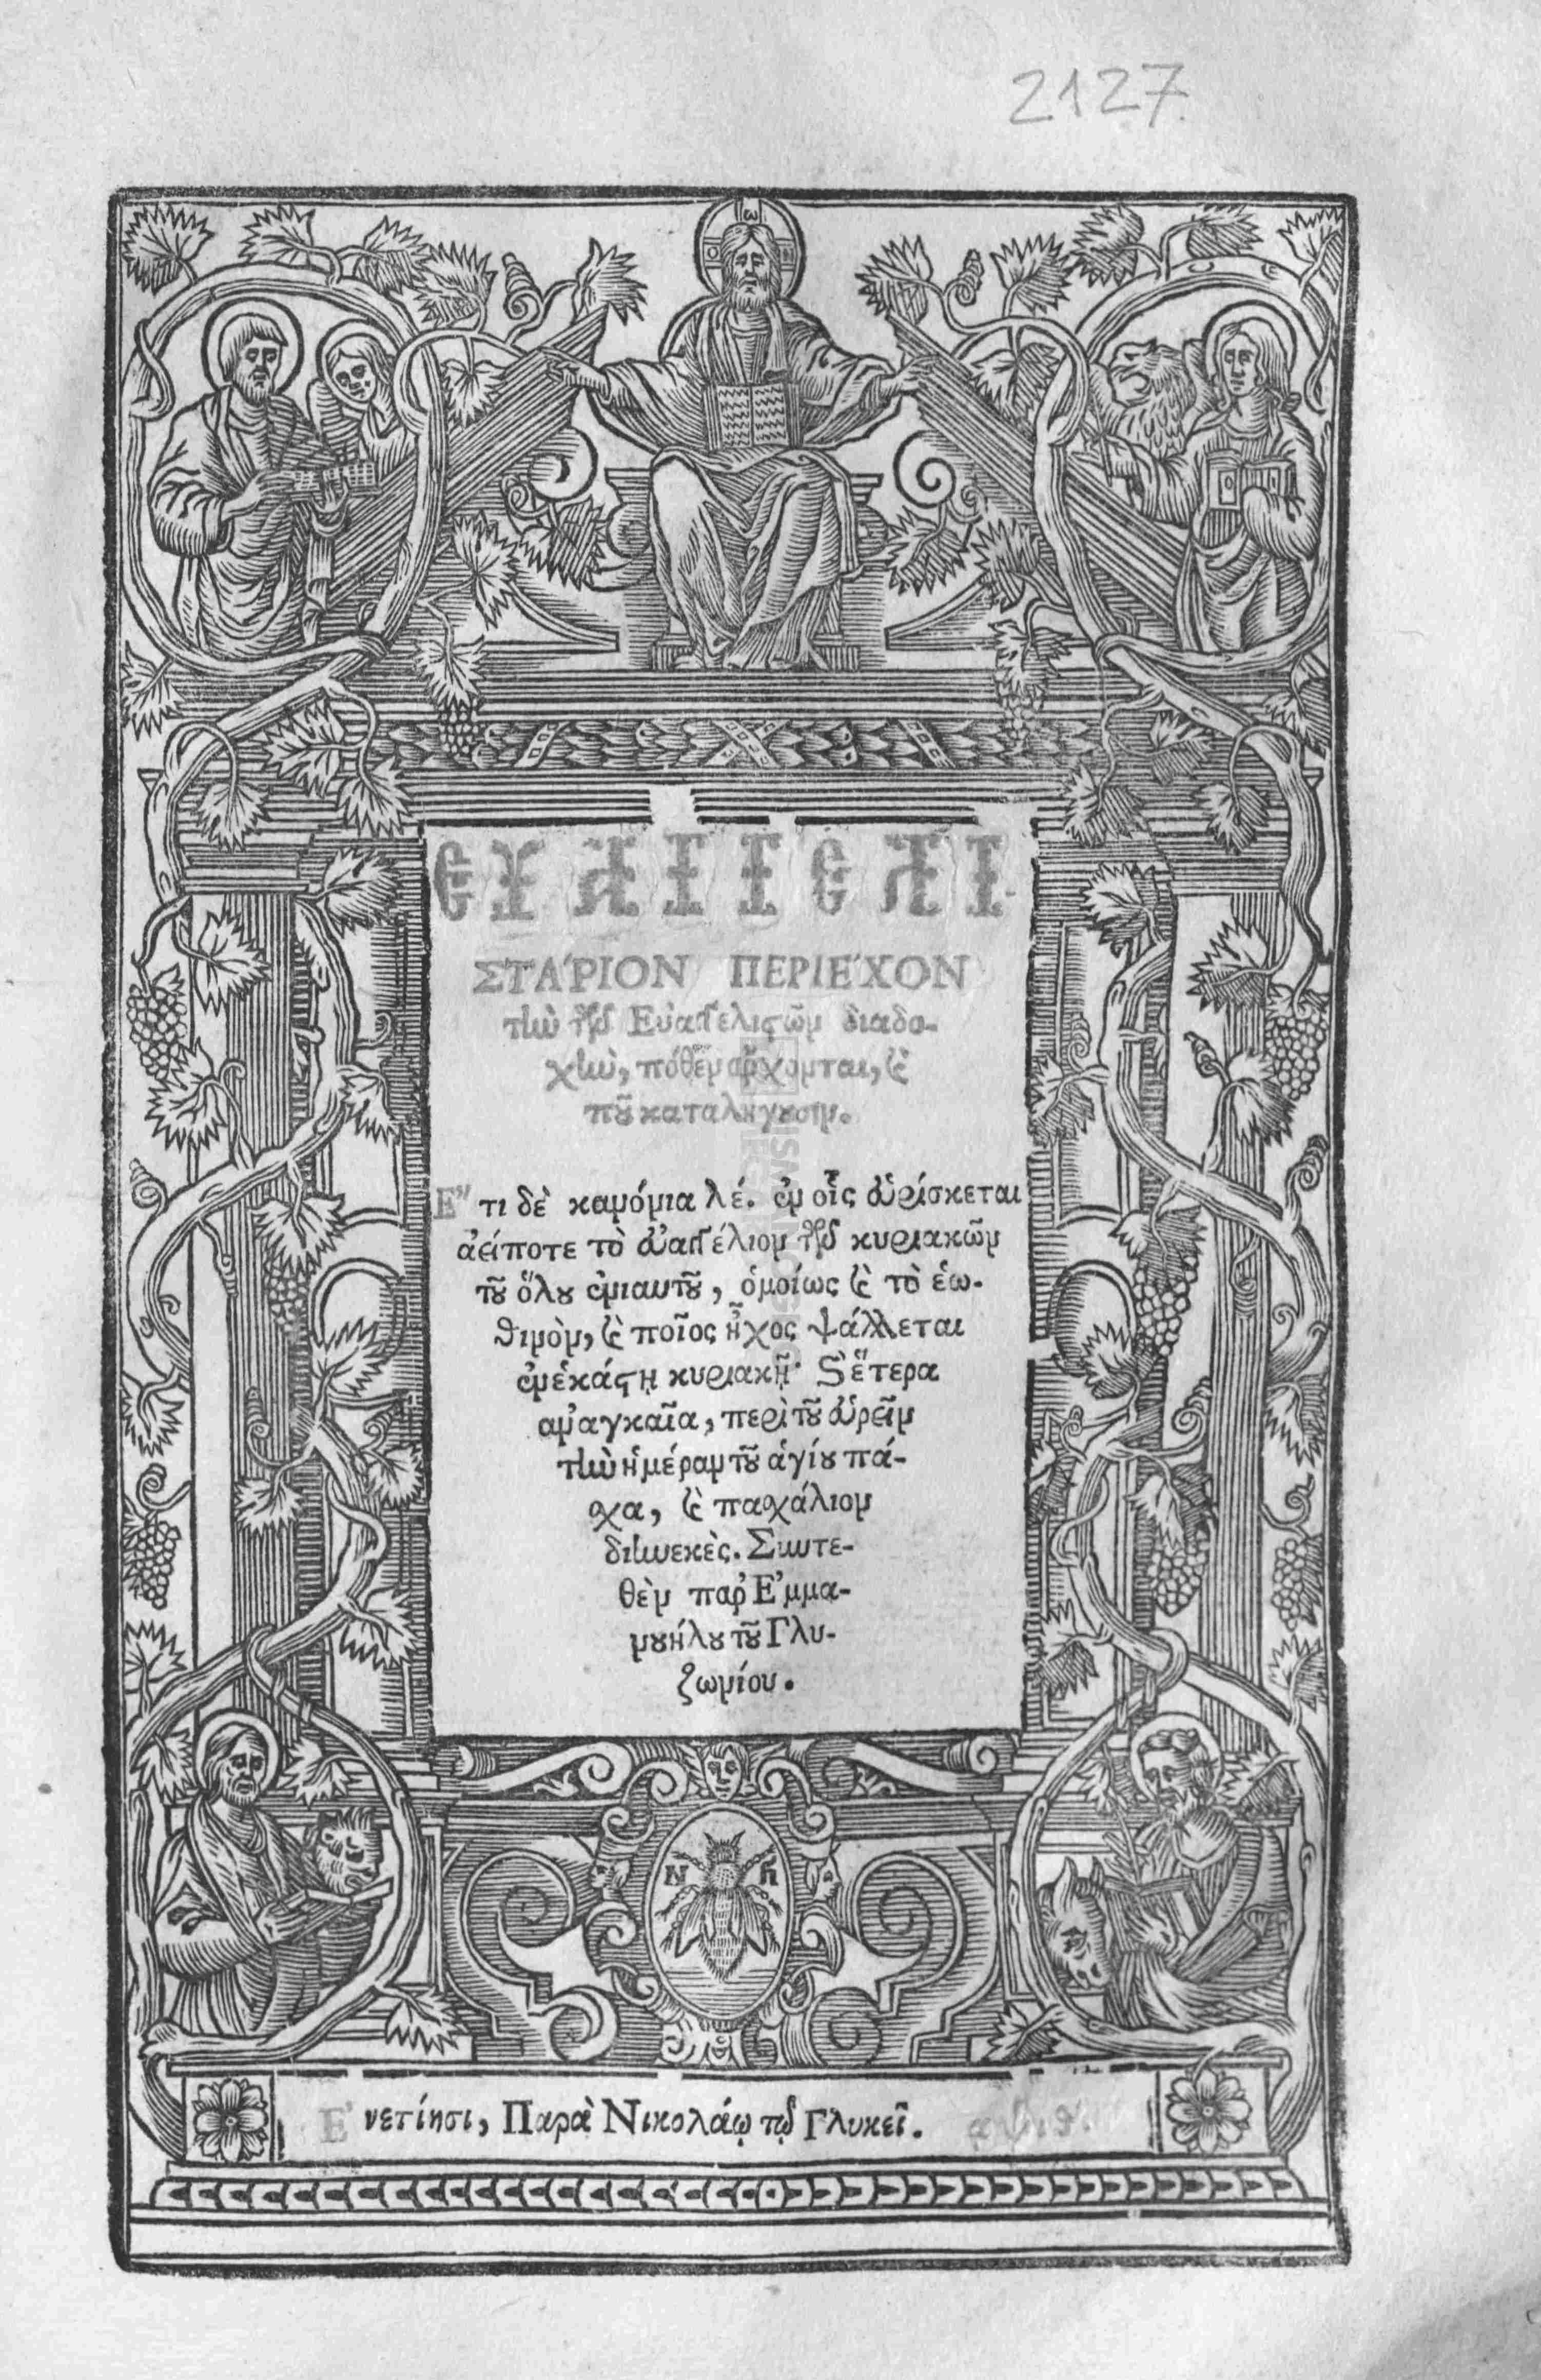 2127
ω
ΕΥΑΓΓΕΛΙ
ΣΤΑ΄ΡΙΟΝ ΠΕΡΙΕ΄ΧΟΝ
τὴν τῶν Εὐαγγελιστῶν διαδο-
χὴν, πόθεν ἄρχονται, καὶ
ποῦ καταλήγουσιν.
Ἔτι δὲ κανόνια λέ. ἐν οἷς εὑρίσκεται
ἀείποτε τὸ εὐαγγέλιον τῶν κυριακῶν
τοῦ ὅλου ἐνιαυτοῦ, ὁμοίως καὶ τὸ ἑω-
θινὸν, καὶ ποῖος ἦχος ψάλλεται
ἐν ἑκάστῃ κυριακῇ· καὶ ἕτερα
ἀναγκαῖα, περὶ τοῦ εὑρεῖν
τὴν ἡμέραν τοῦ ἁγίου πά-
σχα, καὶ πασχάλιον
διηνεκὲς. Συντε-
θὲν παρ' Ἐμμα-
νουήλου τοῦ Γλυ-
ζωνίου.
Ν Γ
Ἐνετίησι, Παρὰ Νικολάῳ τῷ Γλυκεῖ. αψιθ΄.